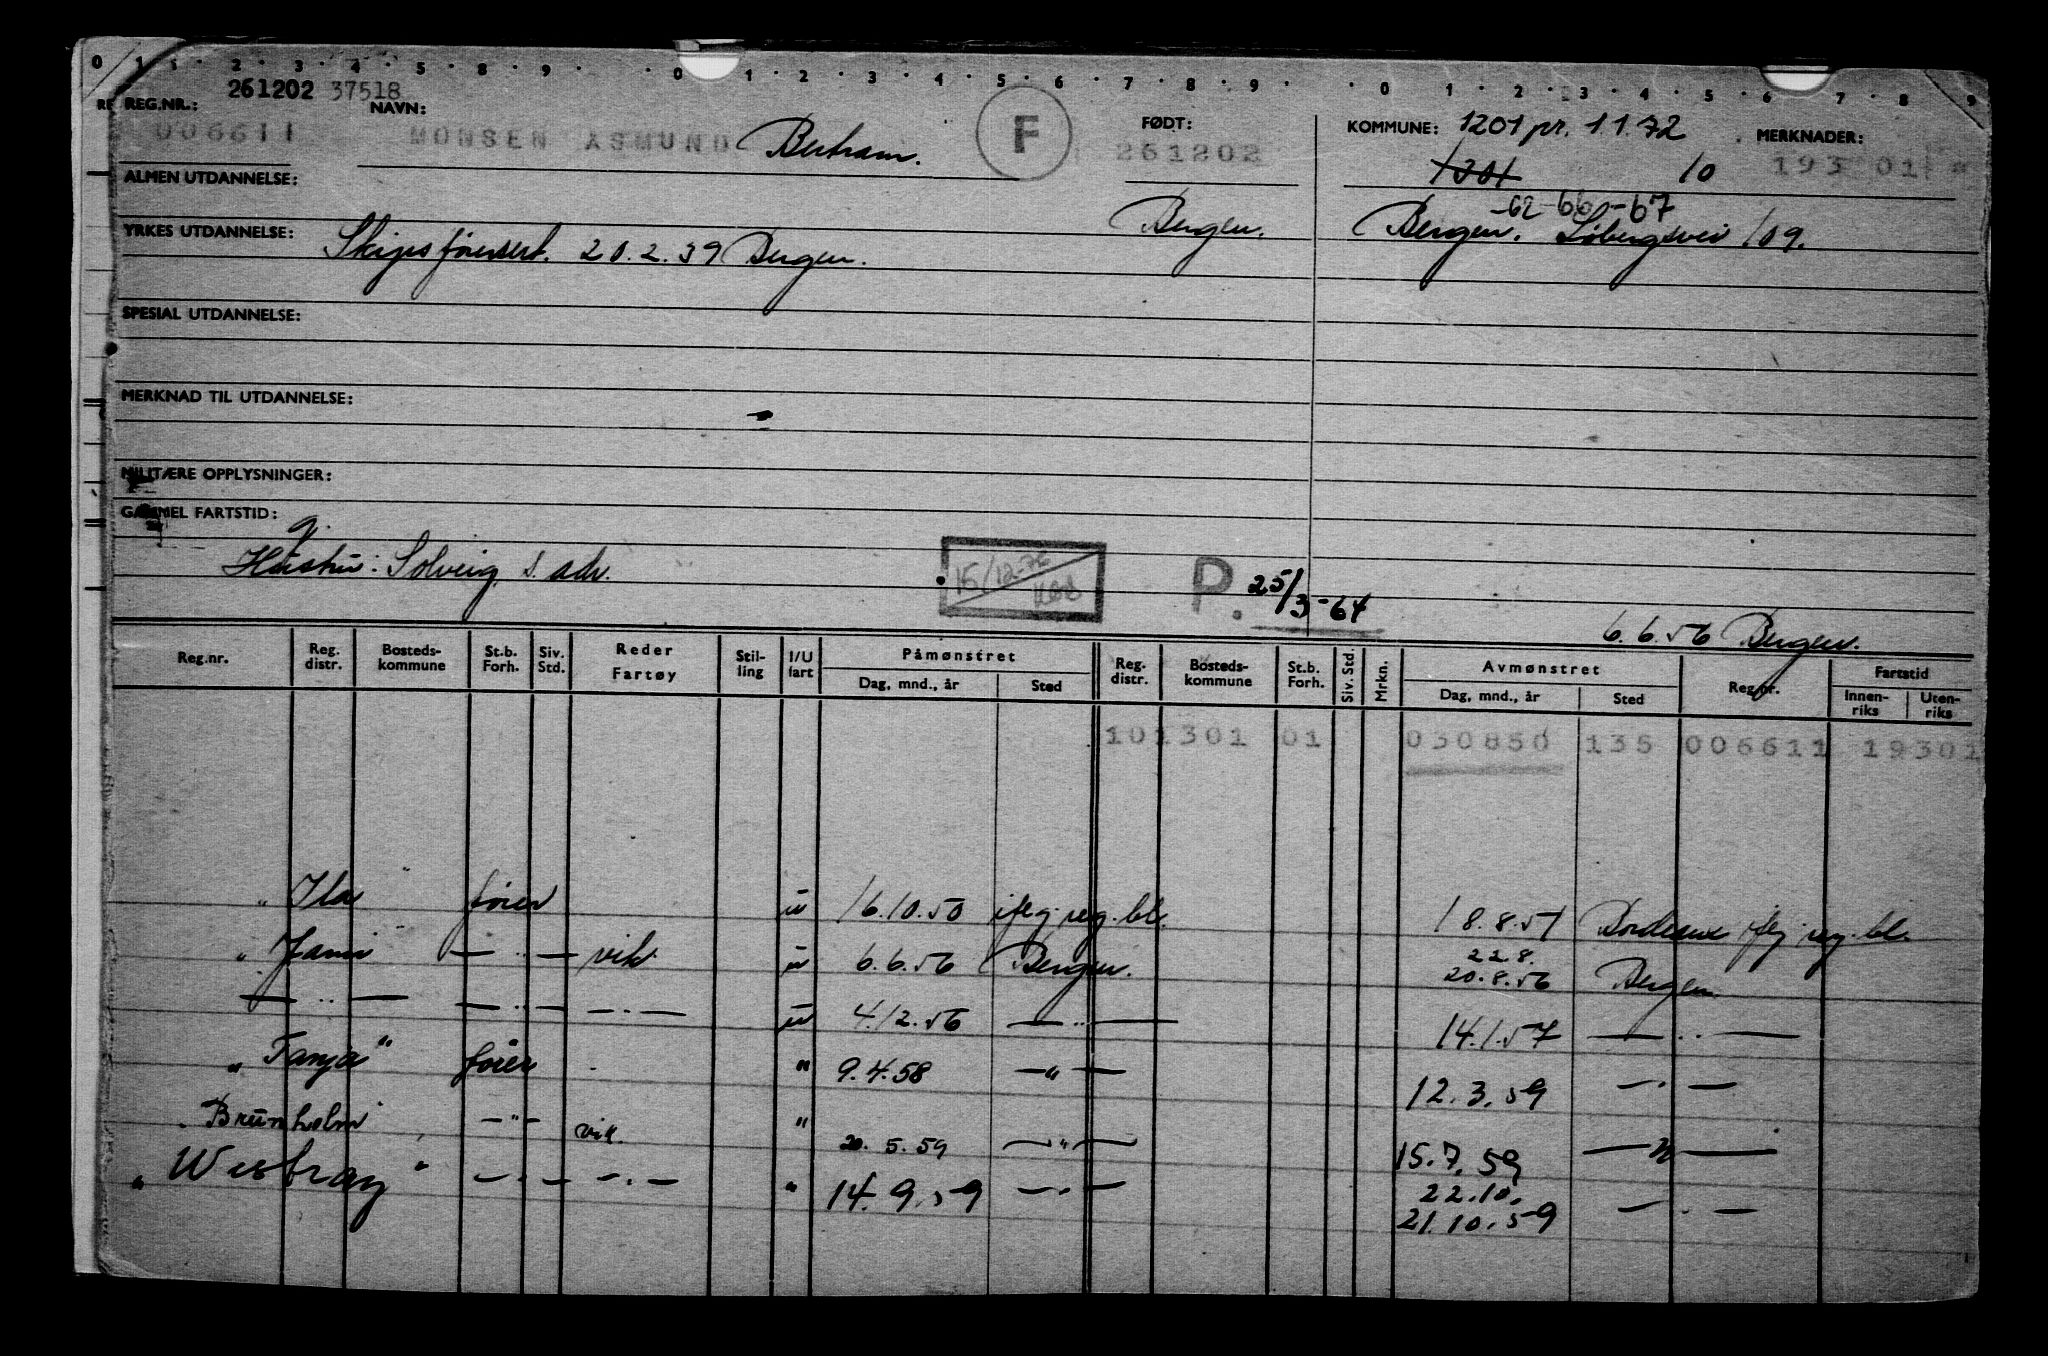 0 1 2 3 4 5 8 9 0 1 2 3 4 5 6 7 8 9 0 1 2 3 4 5 6 7 8 9
261202 37518
REG.NR.: NAVN: FØDT: KOMMUNE: 1201 pr. 1.1.72 MERKNADER:
006611 MONSEN ASMUND Bertram. F 261202 1301 10 193 01
ALMEN UTDANNELSE:
-62-66-67
YRKES UTDANNELSE: Skipsførersert. 20.2.39 Bergen. Bergen. Bergen. 109.
SPESIAL UTDANNELSE:
MERKNAD TIL UTDANNELSE:
MILITÆRE OPPLYSNINGER:
GAMMEL FARTSTID:
g.
Hustru: Solveig s. adr. 15/12-76 P. 25/3-64
6.6.56 Bergen.
Reg.nr. Reg. distr. Bosteds-kommune St.b. Forh. Siv. Std. Reder Fartøy Stil-ling I/U fart Påmønstret Dag, mnd., år Sted Reg. distr. Bosteds-kommune St.b. Forh. Siv. Std. Mrkn. Avmønstret Dag, mnd., år Sted Reg.nr. Fartstid Innen-riks Uten-riks
101301 01 030850 135 006611 19301
" Ila " fører u 16.10.50 iflg. reg. bl. 18.8.51 Bordeaux iflg. reg. bl.
22.8.
" — " — vik. u 6.6.56 Bergen. 20.8.56 Bergen.
— " — — " — — " — u 4.12.56 — " — 14.1.57 — " —
" Tanja " fører " 9.4.58 — " — 12.3.59 — " —
" Brunholm " — " — vik. " 20.5.59 — " — 15.7.59 — " —
22.10.
" Westray " — " — — " — " 14.9.59 — " — 21.10.59 — " —